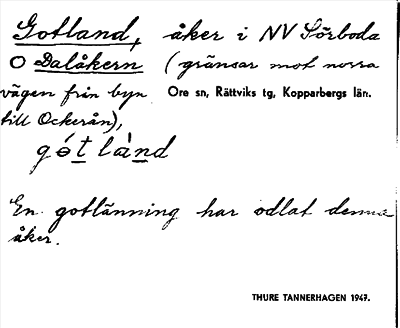 Gotland, åker i NV Sörboda
O Dalåkern (gränsar mot norra
vägen från byn Ore sn, Rättviks tg, Kopparbergs län.
till Ockerån),
gótlànd
En gotlänning har odlat denna
åker.
THURE TANNERHAGEN 1947.